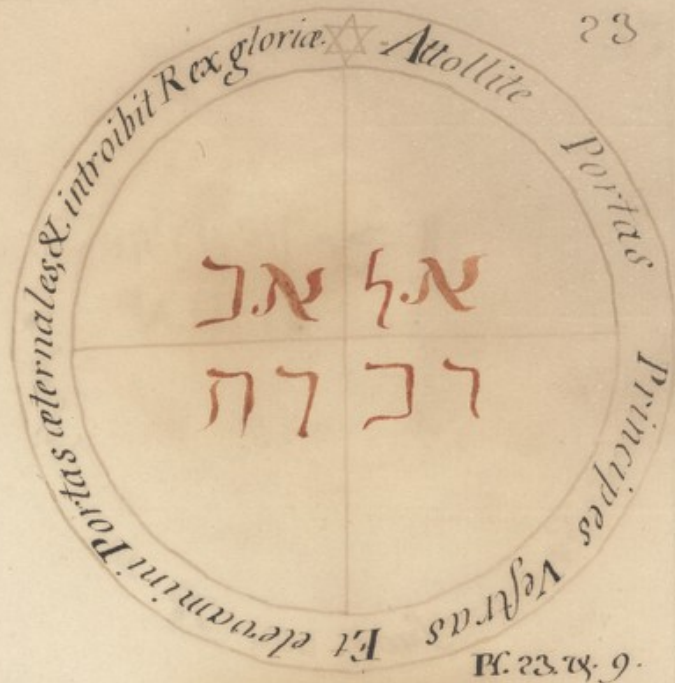 23
Attollite Portas Principes Vestras Et elevamini Portas æternales, & introibit Rex gloriæ.
אל אב
רב רח
Ps. 23. V. 9.